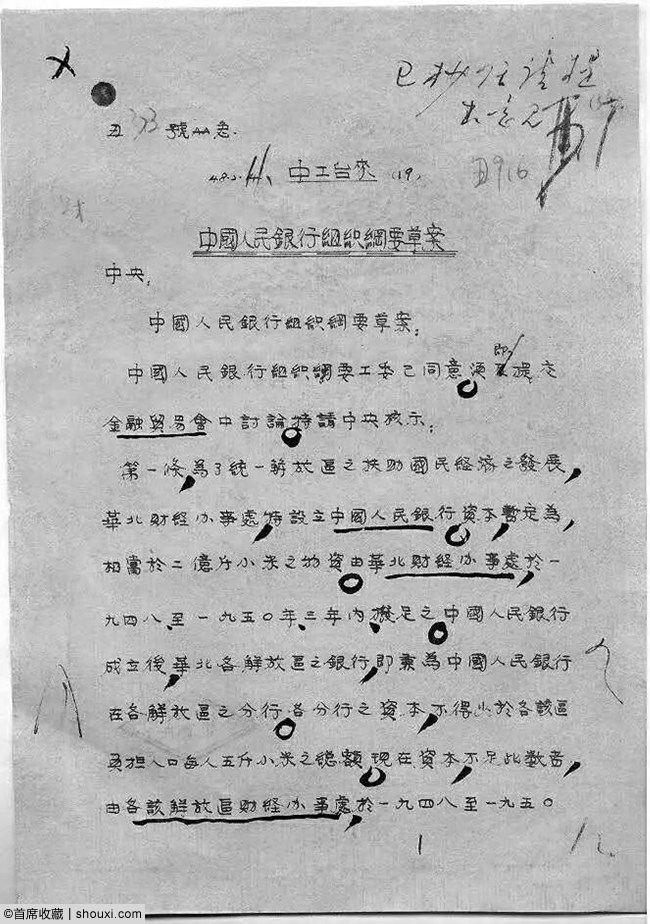 已抄任
丑333號AA急.
48.2.11、中工台來 (19)
丑916
中國人民銀行組织綱要草案
中央:
中國人民銀行組织綱要草案:
中國人民銀行組织綱要工委已同意須即提交
金融貿易會中討論特請中央核示:
第一條為了統一解放區之扶助國民經濟之發展,
華北财經办事處特設立中國人民銀行資本暫定為,
相當於二億斤小米之物資由華北财經办事處於一
九四八、至一九五〇年、三年内、撥足之中國人民銀行
成立後,華北各解放區之銀行,即業為中國人民銀行
在各解放區之分行各分行之資本,不得少於各該區
負担人口每人五斤小米之總額現在資本,不足此數者,
由各該解放區财經办事處於一九四八至一九五〇
1
12
@首席收藏 | shouxi.com